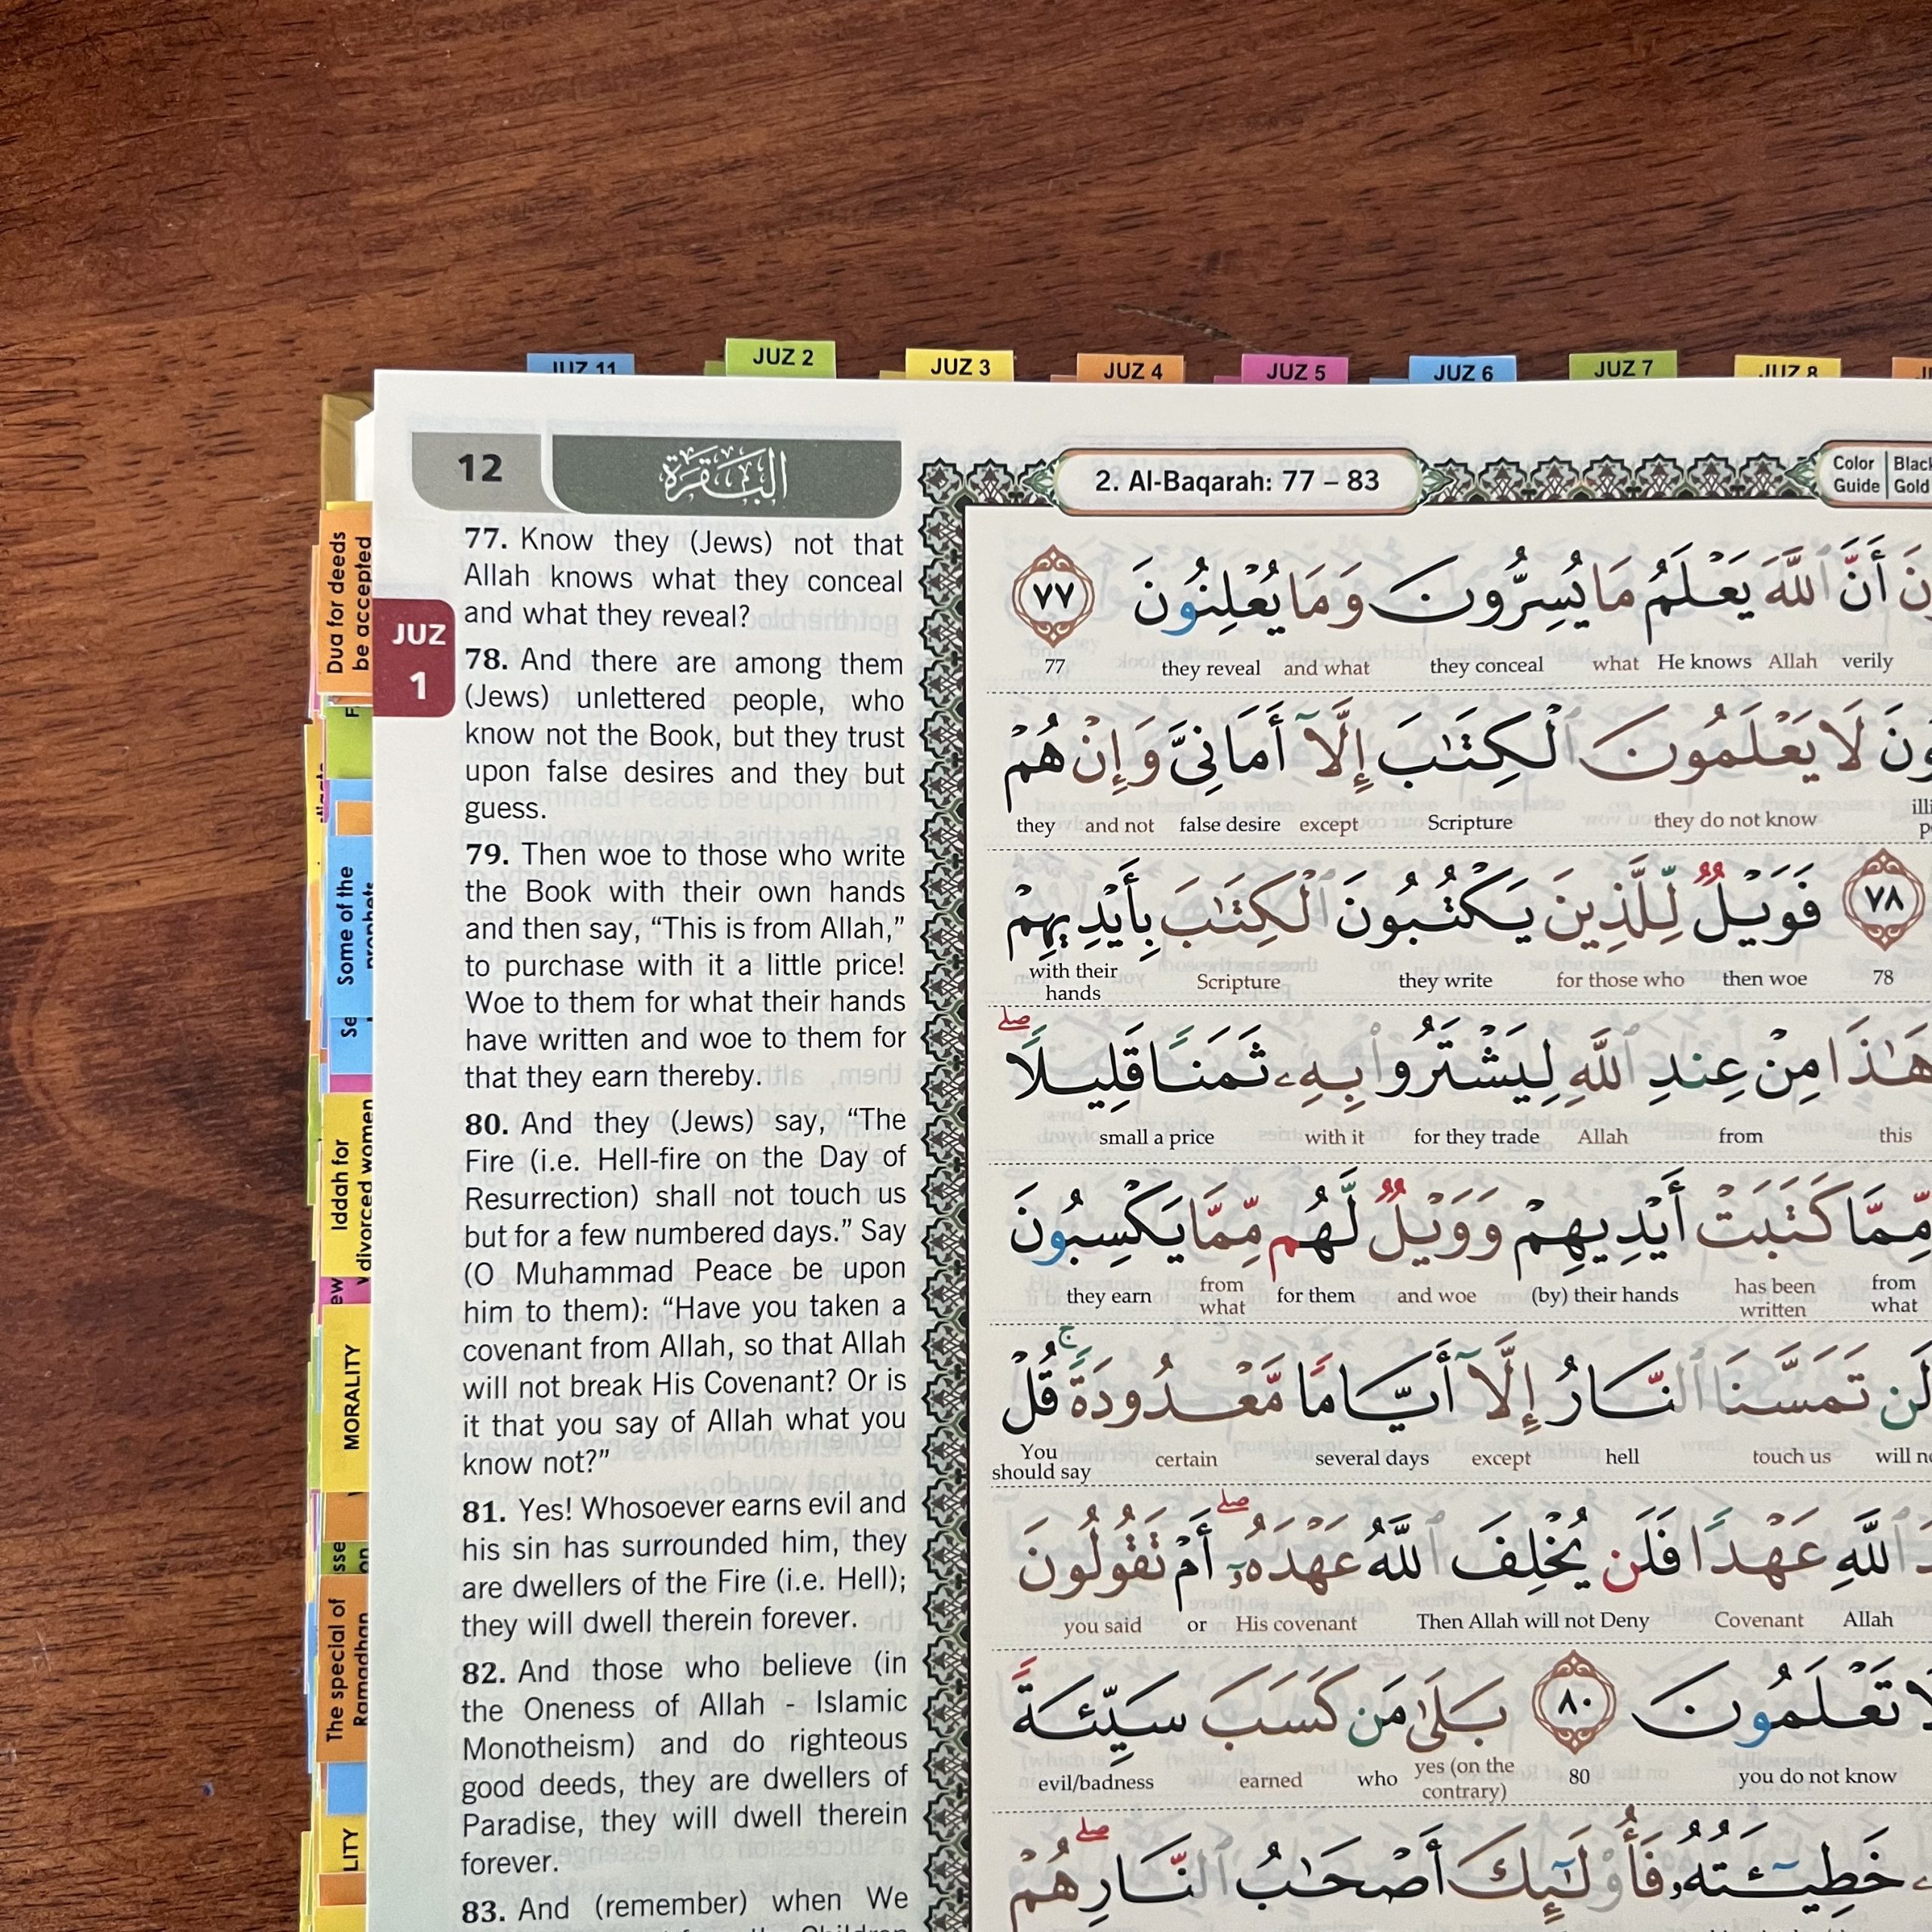 JUZ 11
JUZ 2
JUZ 3
JUZ 4
JUZ 5
JUZ 6
JUZ 7
JUZ 8
12
البقرة
2. Al-Baqarah: 77 – 83
Color
Guide
Gold
JUZ
1
Dua for deeds
be accepted
Some of the
prophets
Iddah for
divorced women
MORALITY
The special of
Ramadhan
77. Know they (Jews) not that
Allah knows what they conceal
and what they reveal?
78. And there are among them
(Jews) unlettered people, who
know not the Book, but they trust
upon false desires and they but
guess.
79. Then woe to those who write
the Book with their own hands
and then say, “This is from Allah,”
to purchase with it a little price!
Woe to them for what their hands
have written and woe to them for
that they earn thereby.
80. And they (Jews) say, “The
Fire (i.e. Hell-fire on the Day of
Resurrection) shall not touch us
but for a few numbered days.” Say
(O Muhammad Peace be upon
him to them): “Have you taken a
covenant from Allah, so that Allah
will not break His Covenant? Or is
it that you say of Allah what you
know not?”
81. Yes! Whosoever earns evil and
his sin has surrounded him, they
are dwellers of the Fire (i.e. Hell);
they will dwell therein forever.
82. And those who believe (in
the Oneness of Allah - Islamic
Monotheism) and do righteous
good deeds, they are dwellers of
Paradise, they will dwell therein
forever.
83. And (remember) when We
أَنَّ ٱللَّهَ يَعْلَمُ مَا يُسِرُّونَ وَمَا يُعْلِنُونَ ٧٧
verily Allah He knows what they conceal and what they reveal 77
لَا يَعْلَمُونَ ٱلْكِتَٰبَ إِلَّآ أَمَانِىَّ وَإِنْ هُمْ
they do not know Scripture except false desire and not they
٧٨ فَوَيْلٌ لِّلَّذِينَ يَكْتُبُونَ ٱلْكِتَٰبَ بِأَيْدِيهِمْ
78 then woe for those who they write Scripture with their
hands
هَٰذَا مِنْ عِندِ ٱللَّهِ لِيَشْتَرُوا۟ بِهِۦ ثَمَنًا قَلِيلًا ۖ
this from Allah for they trade with it small a price
مِّمَّا كَتَبَتْ أَيْدِيهِمْ وَوَيْلٌ لَّهُم مِّمَّا يَكْسِبُونَ
from
what has been
written (by) their hands and woe for them from
what they earn
لَن تَمَسَّنَا ٱلنَّارُ إِلَّآ أَيَّامًا مَّعْدُودَةً ۚ قُلْ
touch us hell except several days certain You
should say
ٱللَّهِ عَهْدًا فَلَن يُخْلِفَ ٱللَّهُ عَهْدَهُۥٓ ۖ أَمْ تَقُولُونَ
Allah Covenant Then Allah will not Deny His covenant or you said
تَعْلَمُونَ ٨٠ بَلَىٰ مَن كَسَبَ سَيِّئَةً
you do not know 80 yes (on the
contrary) who earned evil/badness
خَطِيٓـَٔتُهُۥ فَأُو۟لَٰٓئِكَ أَصْحَٰبُ ٱلنَّارِ ۖ هُمْ